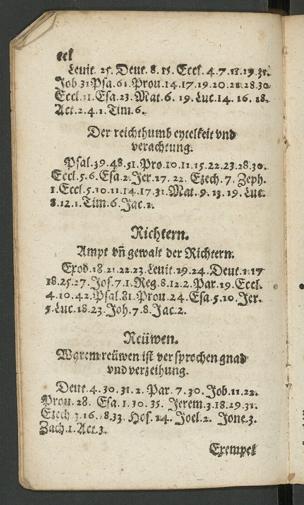 eel
Levit. 25. Deut. 8. 15. Eccl. 4.7.18.19.31.
Job 31 Psa. 61. Prou. 14.17.19.20.21.28.30
Eccl. 11. Esa. 23. Mat. 6. 19. Luc. 14. 16. 18.
Act. 2.4.1. Tim. 6.
Der reichthumb eytelkeit vnd
verachtung.
Psal. 39.48.51. Pro. 10.11.15.22.23.28.30.
Eccl. 5.6. Esa. 2. Jer. 17. 22. Ezech. 7. Zeph.
1. Eccl. 5.10.11.14.17.31. Mat. 9. 13. 19. Luc.
8.12.1. Tim. 6. Jac. 2.
Richtern.
Ampt vñ gewalt der Richtern.
Exod. 18.21.22.23. Levit. 19.24. Deut. 1.17
18.25.27. Jos. 7.1. Reg. 8.12.2. Par. 19. Eccl.
4.10.42. Psal. 81. Prou. 24. Esa. 5.10. Jer.
5. Luc. 18.23. Joh. 7.8. Jac. 2.
Reüwen.
Waremreüwen ist versprochen gnad
vnd verzeihung.
Deut. 4.30.31.2. Par. 7.30. Job. 11.22.
Prou. 28. Esa. 1.30.35. Jerem. 3.18.29.31.
Ezech 3.16..8.33. Hos. 14. Joel. 2. Jone. 3.
Zach. 1. Act. 3.
Exempel